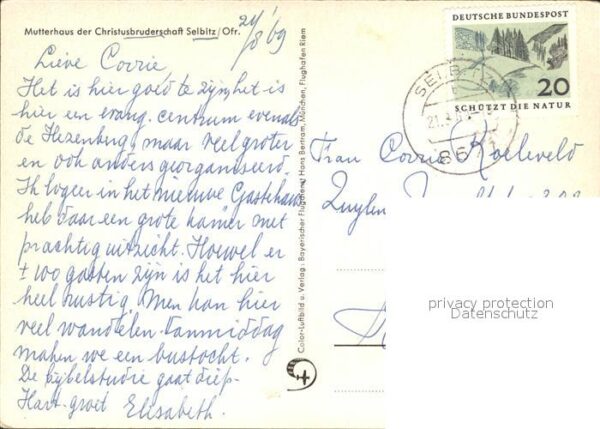 Mutterhaus der Christusbruderschaft Selbitz/Ofr.
21/8 69
Lieve Corrie
Het is hier goed te zijn, het is
hier een evang. centrum evenals
de Hezenberg, maar veel groter
en ook anders georganiseerd.
Ik logeer in het nieuwe Gästehaus
heb daar een grote kamer met
prachtig uitzicht. Hoewel er
± 100 gasten zijn is het hier
heel rustig. Men kan hier
veel wandelen. Vanmiddag
maken we een bustocht.
De bijbelstudie gaat diep.
Hart. groet Elisabeth.
Color-Luftbild u. Verlag: Bayerischer Flugdienst Hans Bertram, München, Flughafen Riem
DEUTSCHE BUNDESPOST
20
SCHÜTZT DIE NATUR
SELBITZ
21.8.69
8671
Frau Corrie Roeleveld
Zuylen
privacy protection
Datenschutz